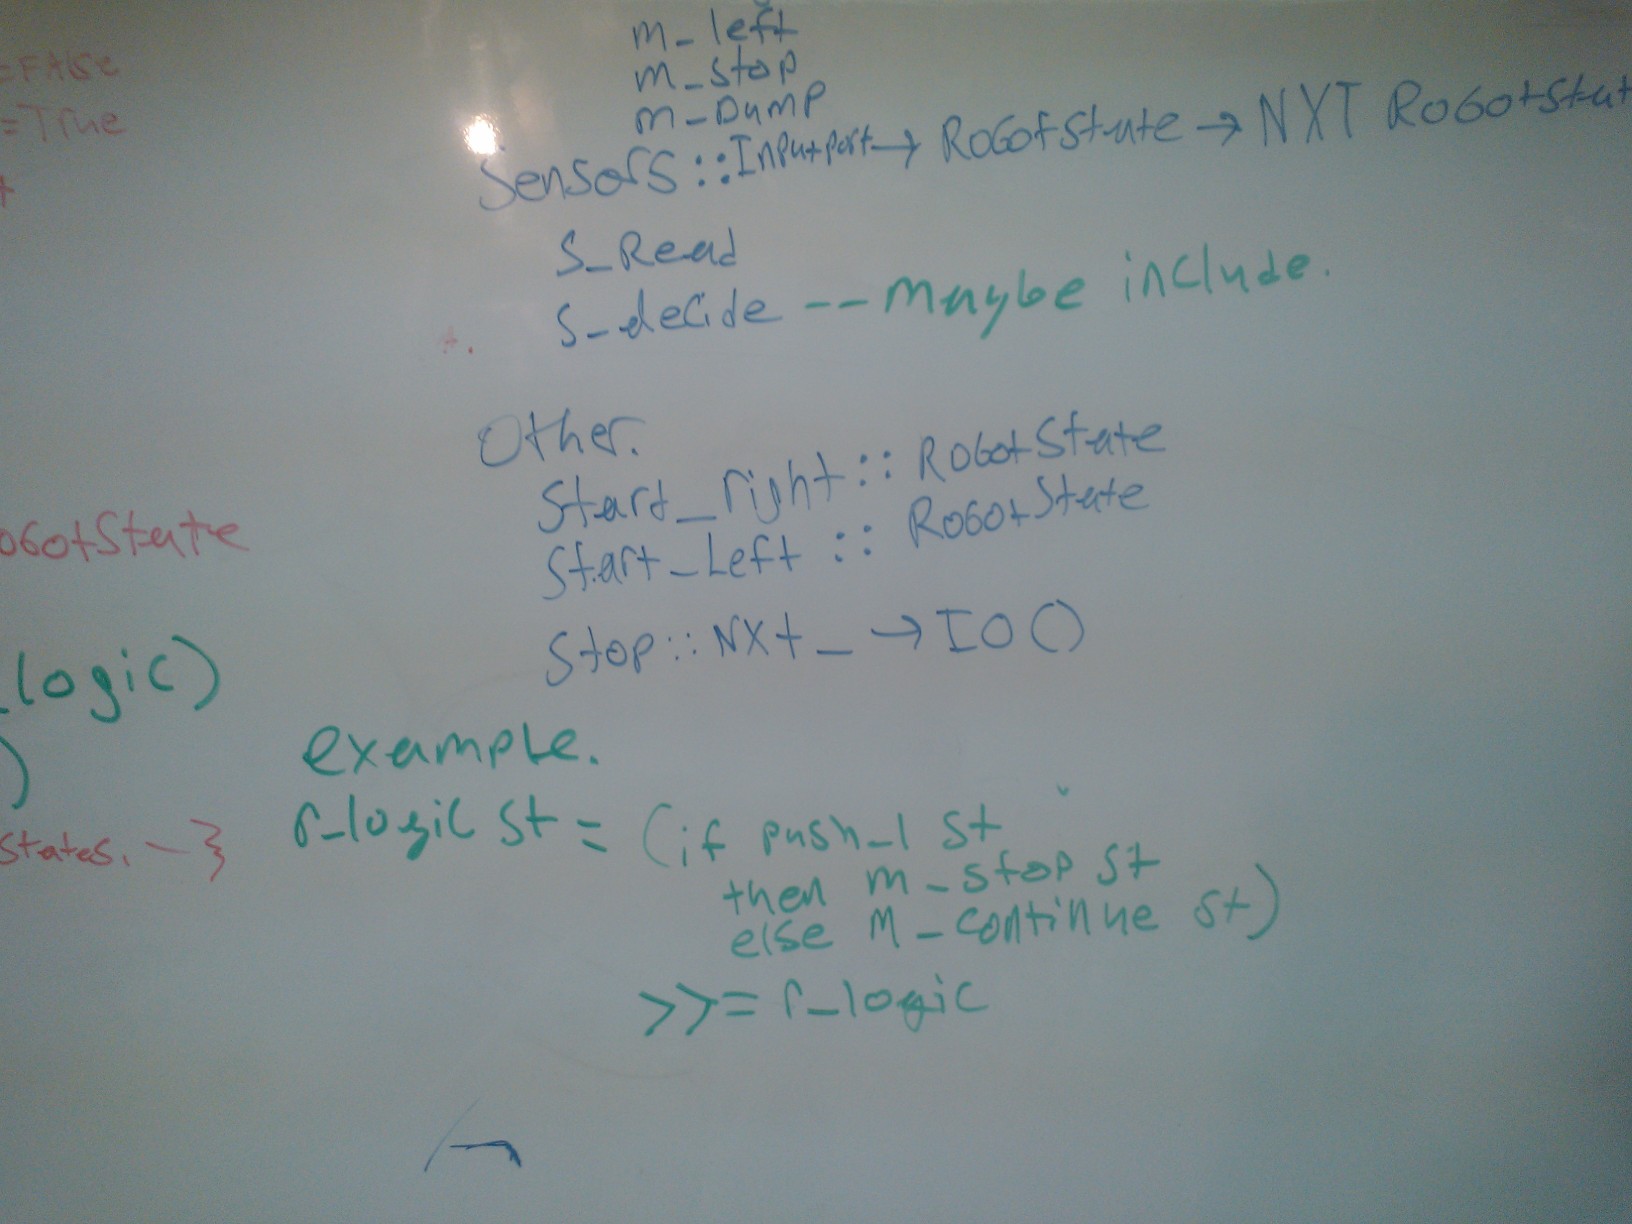 m_left
=False
m_stop
=True
m_Dump
Sensors :: Inputport → RobotState → NXT RobotStat
S_Read
S_decide -- maybe include.
Other.
Start_right :: RobotState
Start_Left :: RobotState
obotState
Stop :: NXt _ → IO ()
_logic)
example.
)
r_logic st = (if push_1 st
States. -}
then m_stop st
else m_continue st)
>>= r_logic